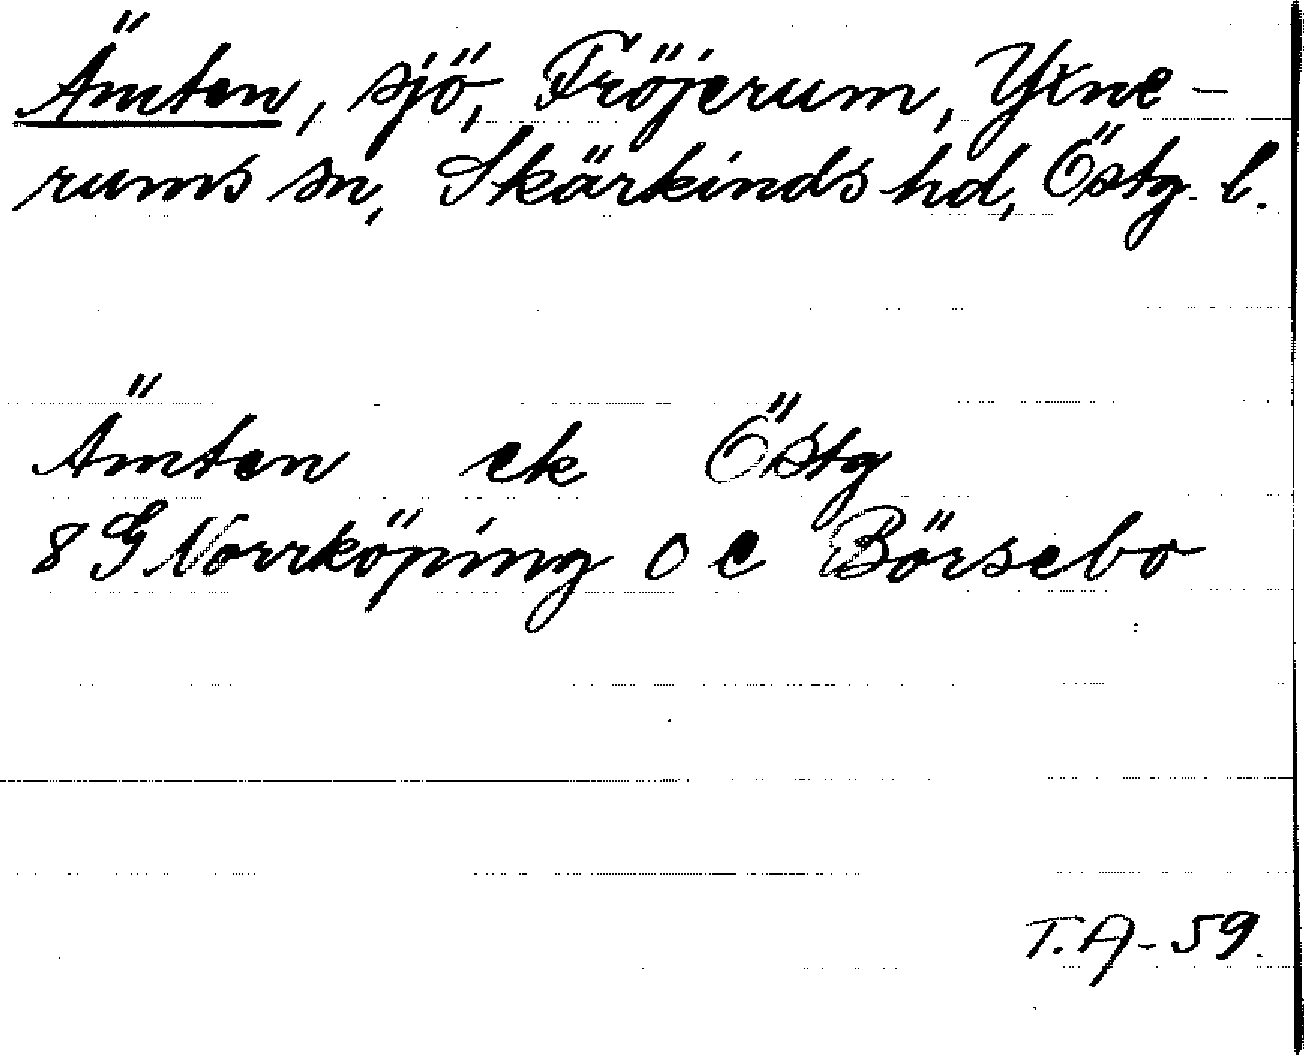 Ämten, sjö, Fröjerum, Yxne-
rums sn, Skärkinds hd, Östg. l.
Ämten ek Östg
8 G Norrköping 0 e Börsebo
T.A-59.